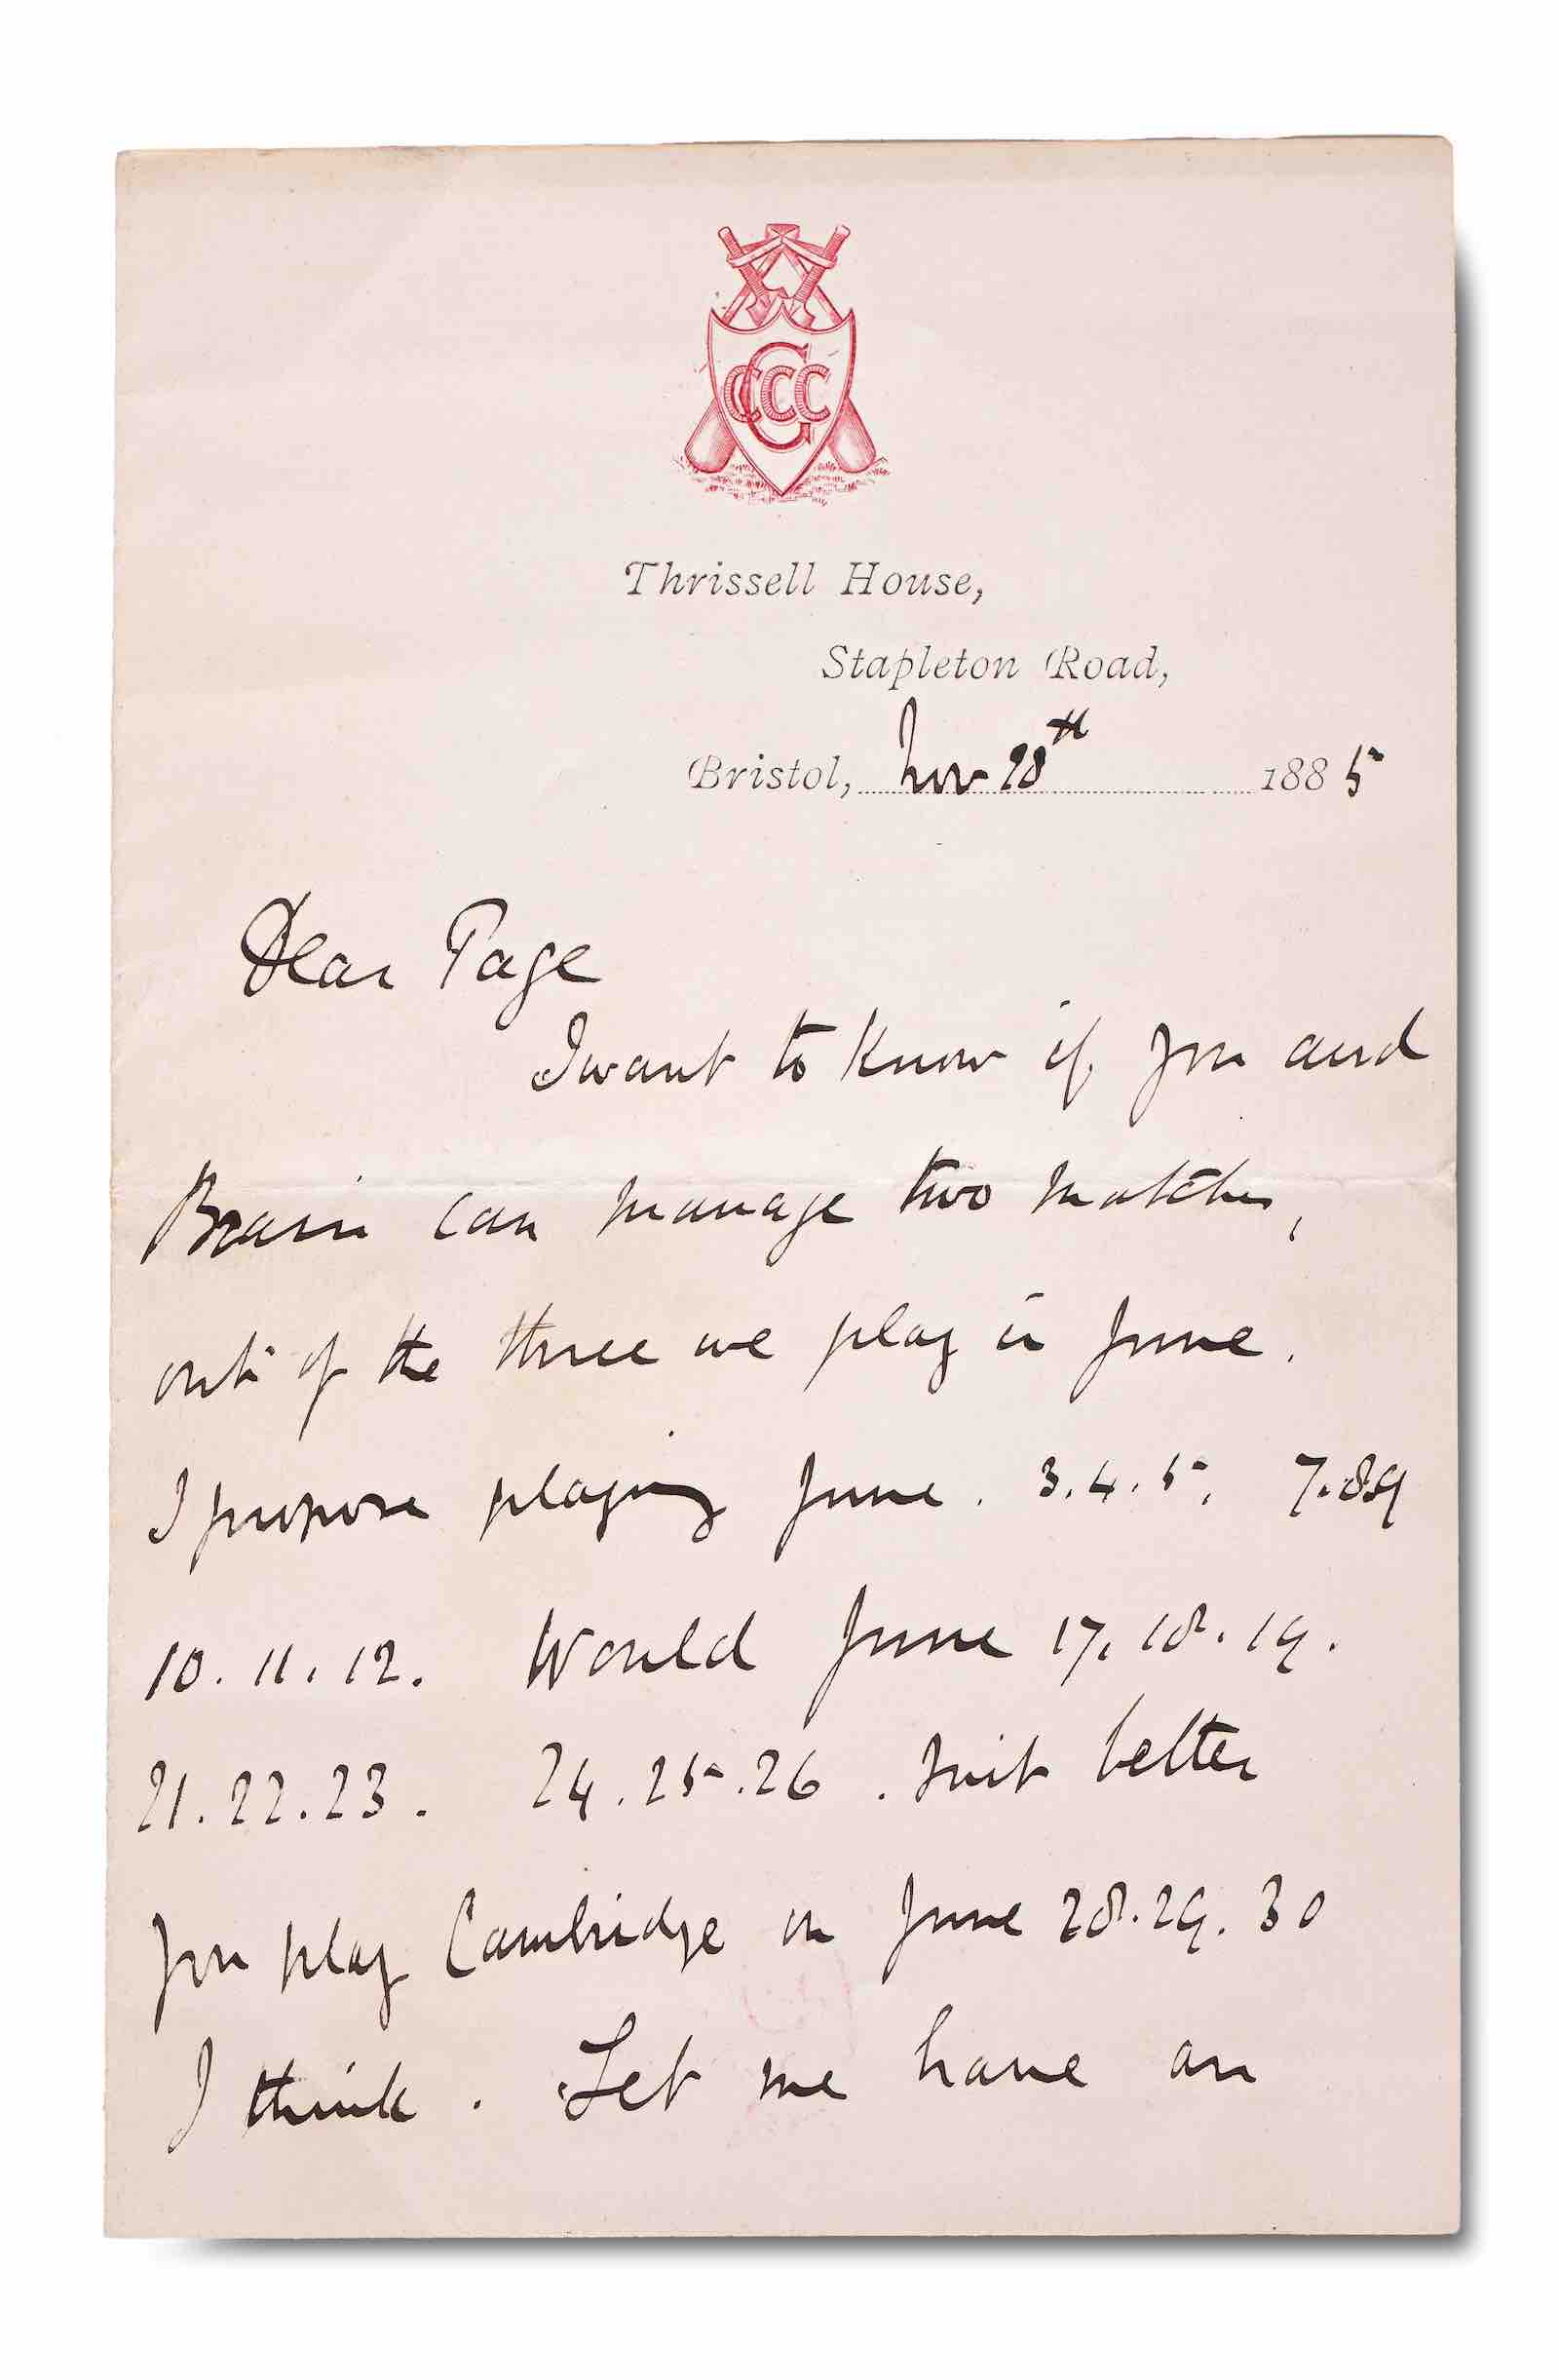 GCCC
Thrissell House,
Stapleton Road,
Bristol, Nov 28th 1885
Dear Page
I want to know if you and
Brain can manage two matches,
out of the three we play in June.
I propose playing June. 3.4.5. 7.89
10.11.12. Would June 17.18.19.
21.22.23. 24.25.26. suit better
you play Cambridge on June 28.29.30
I think. Let me have an